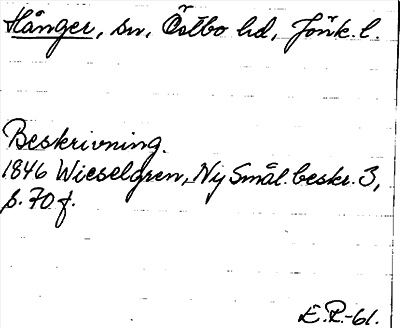 Hånger, sn, Östbo hd, Jönk. l.
Beskrivning.
1846 Wieselgren, Ny Smål. beskr. 3,
s. 70 f.
E.P.-61.